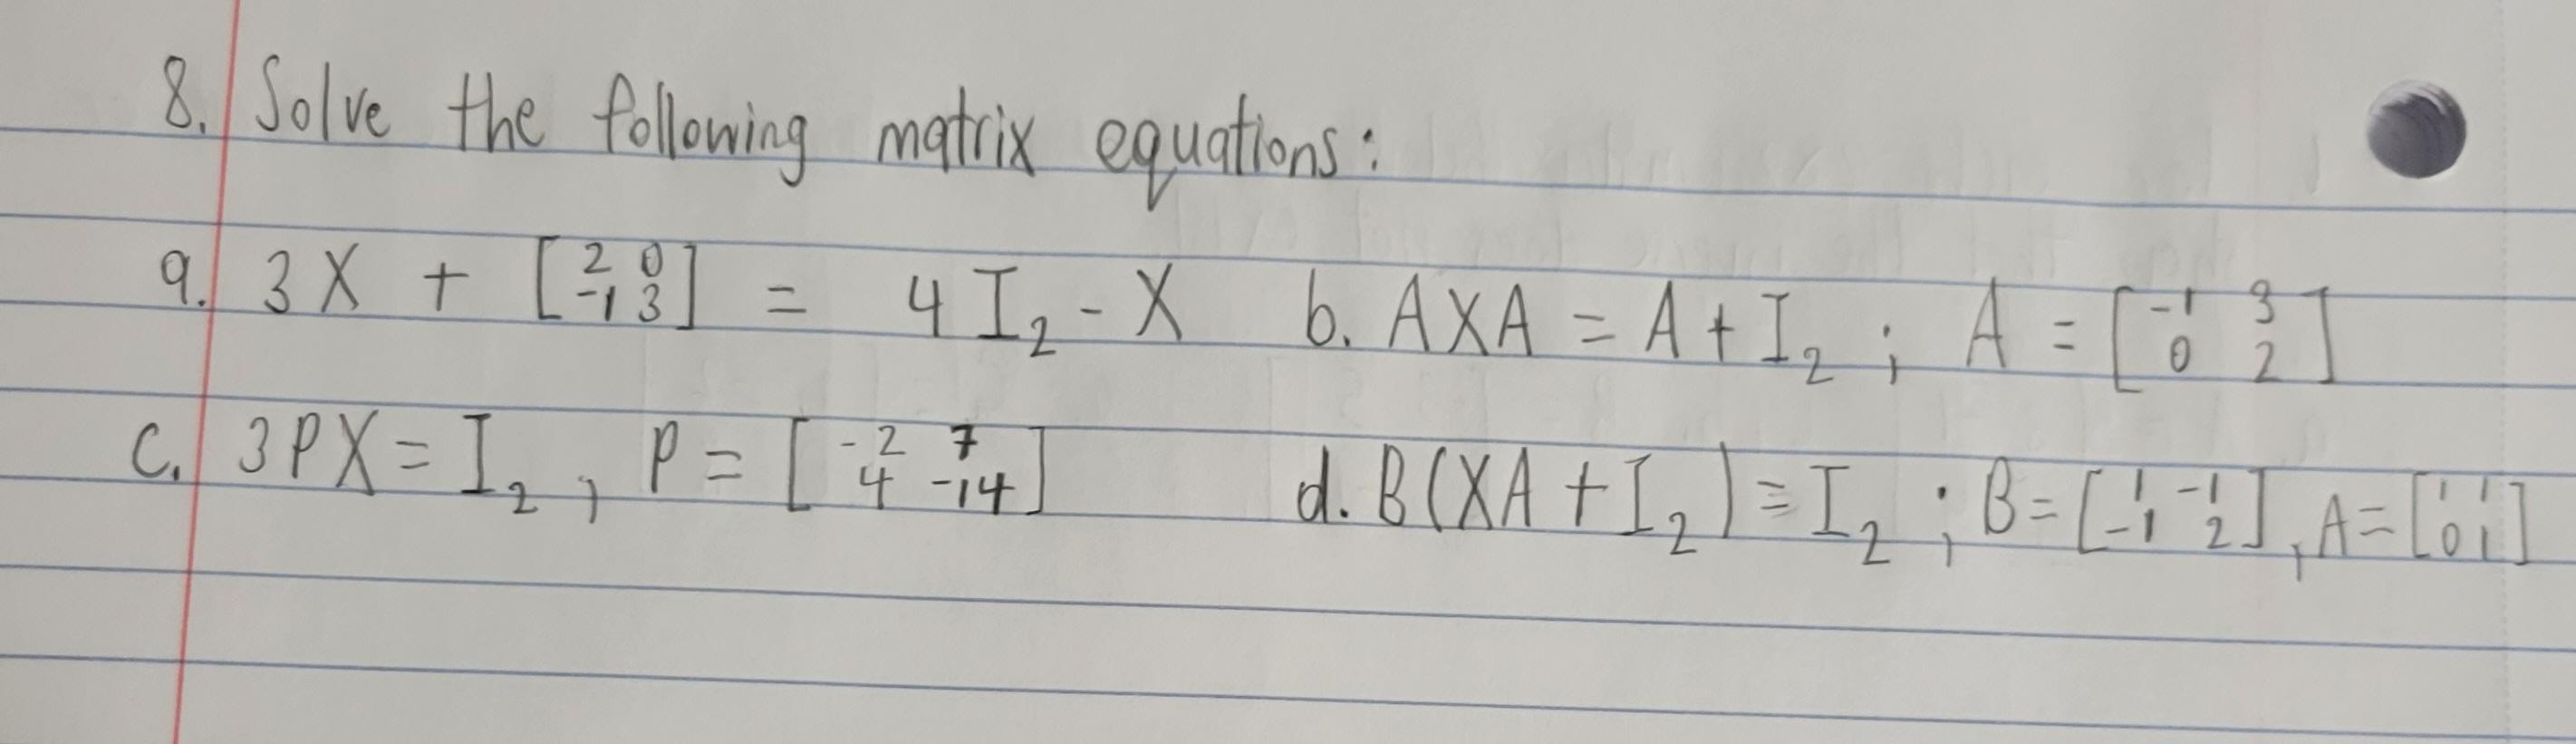 8. Solve the following matrix equations:
a. 3X + [2 0; -1 3] = 4I₂ - X b. AXA = A + I₂ ; A = [-1 3; 0 2]
c. 3PX = I₂ , P = [-2 7; 4 -14] d. B(XA + I₂) = I₂ ; B = [1 -1; -1 2] , A = [1 1; 0 1]